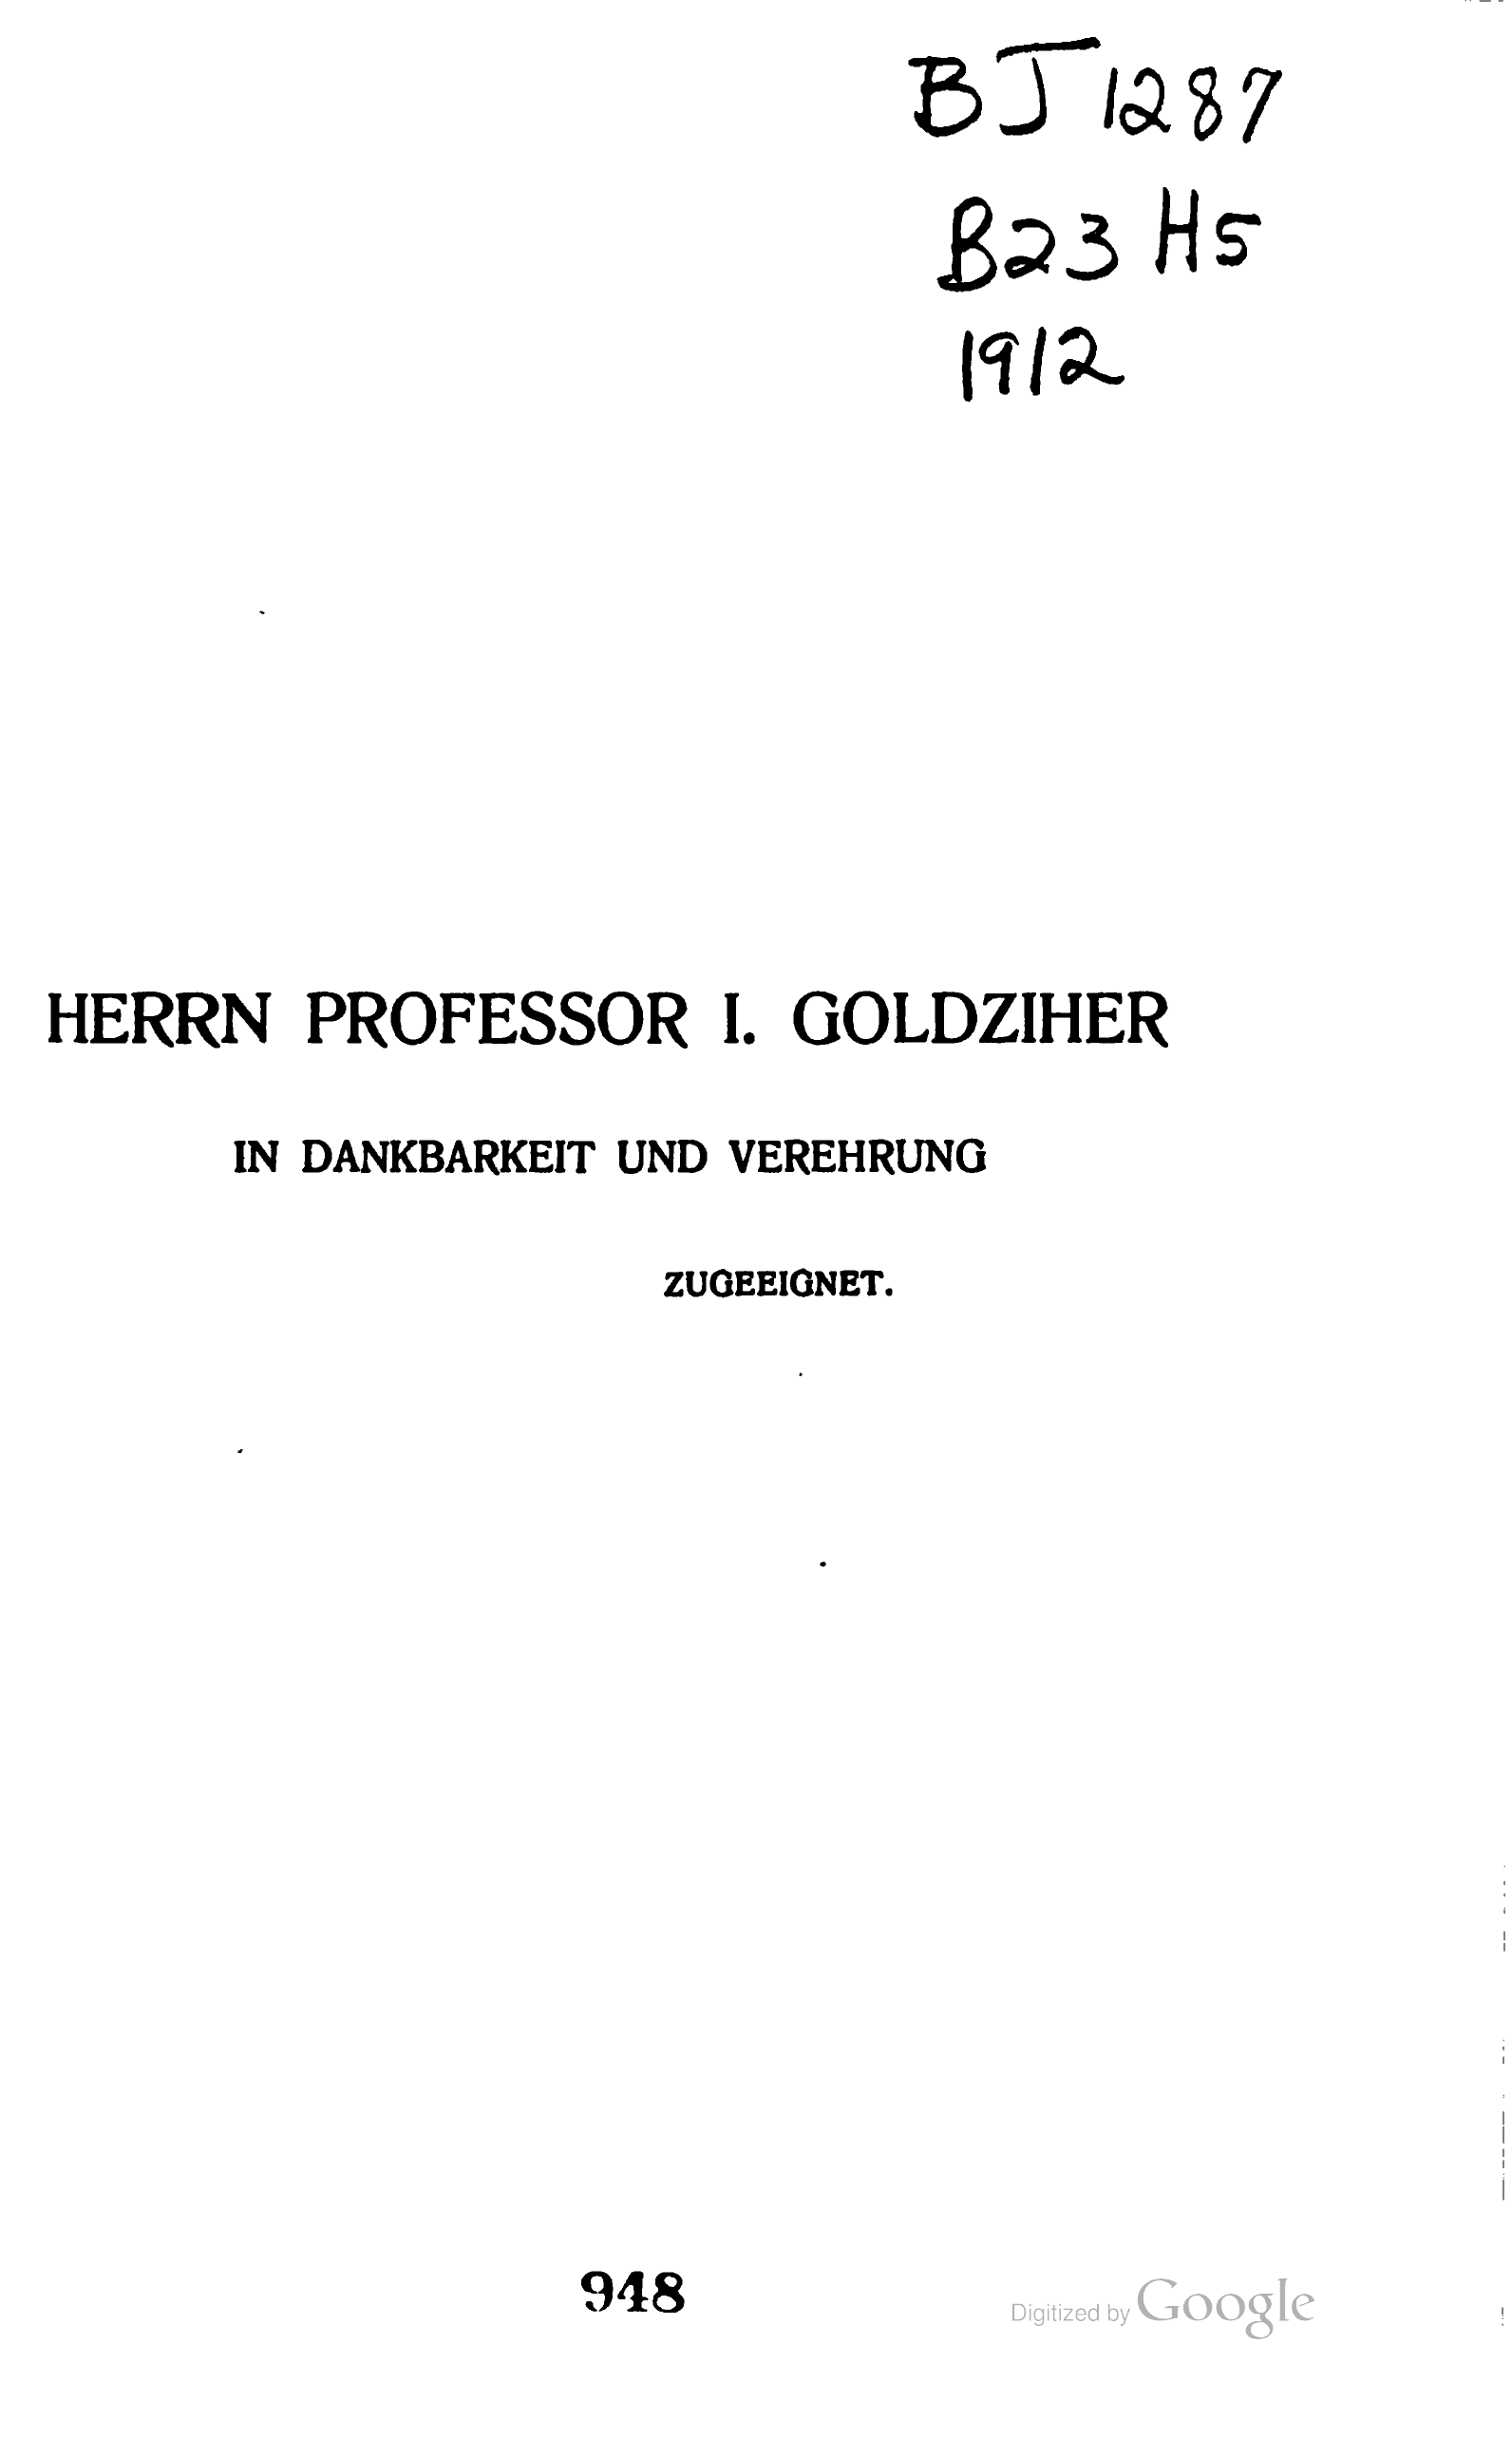 BJ 1287
B23 H5
1912
HERRN PROFESSOR I. GOLDZIHER
IN DANKBARKEIT UND VEREHRUNG
ZUGEEIGNET.
948
Digitized by Google